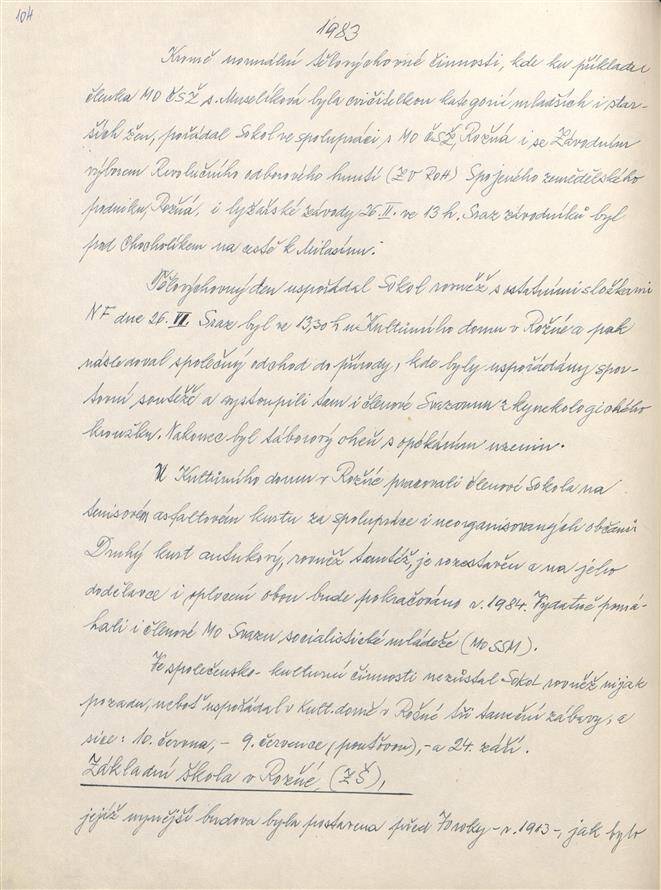 104
1983
Kromě normální tělovýchovné činnosti, kde ku příkladu
členka MO ČSŽ s. Musilíková byla cvičitelkou kategorií mladších i star-
ších žen, pořádal Sokol ve spolupráci s MO ČSŽ, Rožná i se Závodním
výborem Revolučního odborového hnutí (ZV ROH) Spojeného zemědělského
podniku, Rožná, i lyžařské závody 26. II. ve 13 h. Sraz závodníků byl
pod Chocholíkem na cestě k Milasínu.
Tělovýchovný den uspořádal Sokol rovněž s ostatními složkami
NF dne 26. VI. Sraz byl ve 13,30 h u Kulturního domu v Rožné a pak
následoval společný odchod do přírody, kde byly uspořádány spor-
tovní soutěže a vystoupili tam i členové Svazarmu z kynologického
kroužku. Nakonec byl táborový oheň s opékáním uzenin.
U Kulturního domu v Rožné pracovali členové Sokola na
tenisovém asfaltovém kurtu za spolupráce i neorganisovaných občanů.
Druhý kurt antukový, rovněž tamtéž, je rozestavěn a na jeho
dodělavce i oplocení obou bude pokračováno r. 1984. Vydatně pomá-
hali i členové MO Svazu socialistické mládeže (MO SSM).
Ve společensko-kulturní činnosti nezůstal Sokol rovněž nijak
pozadu, neboť uspořádal v Kult. domě v Rožné tři taneční zábavy, a
sice: 10. června, - 9. července (pouťovou), - a 24. září.
Základní škola v Rožné, (ZŠ),
jejíž nynější budova byla postavena před 70 roky - r. 1913 -, jak bylo